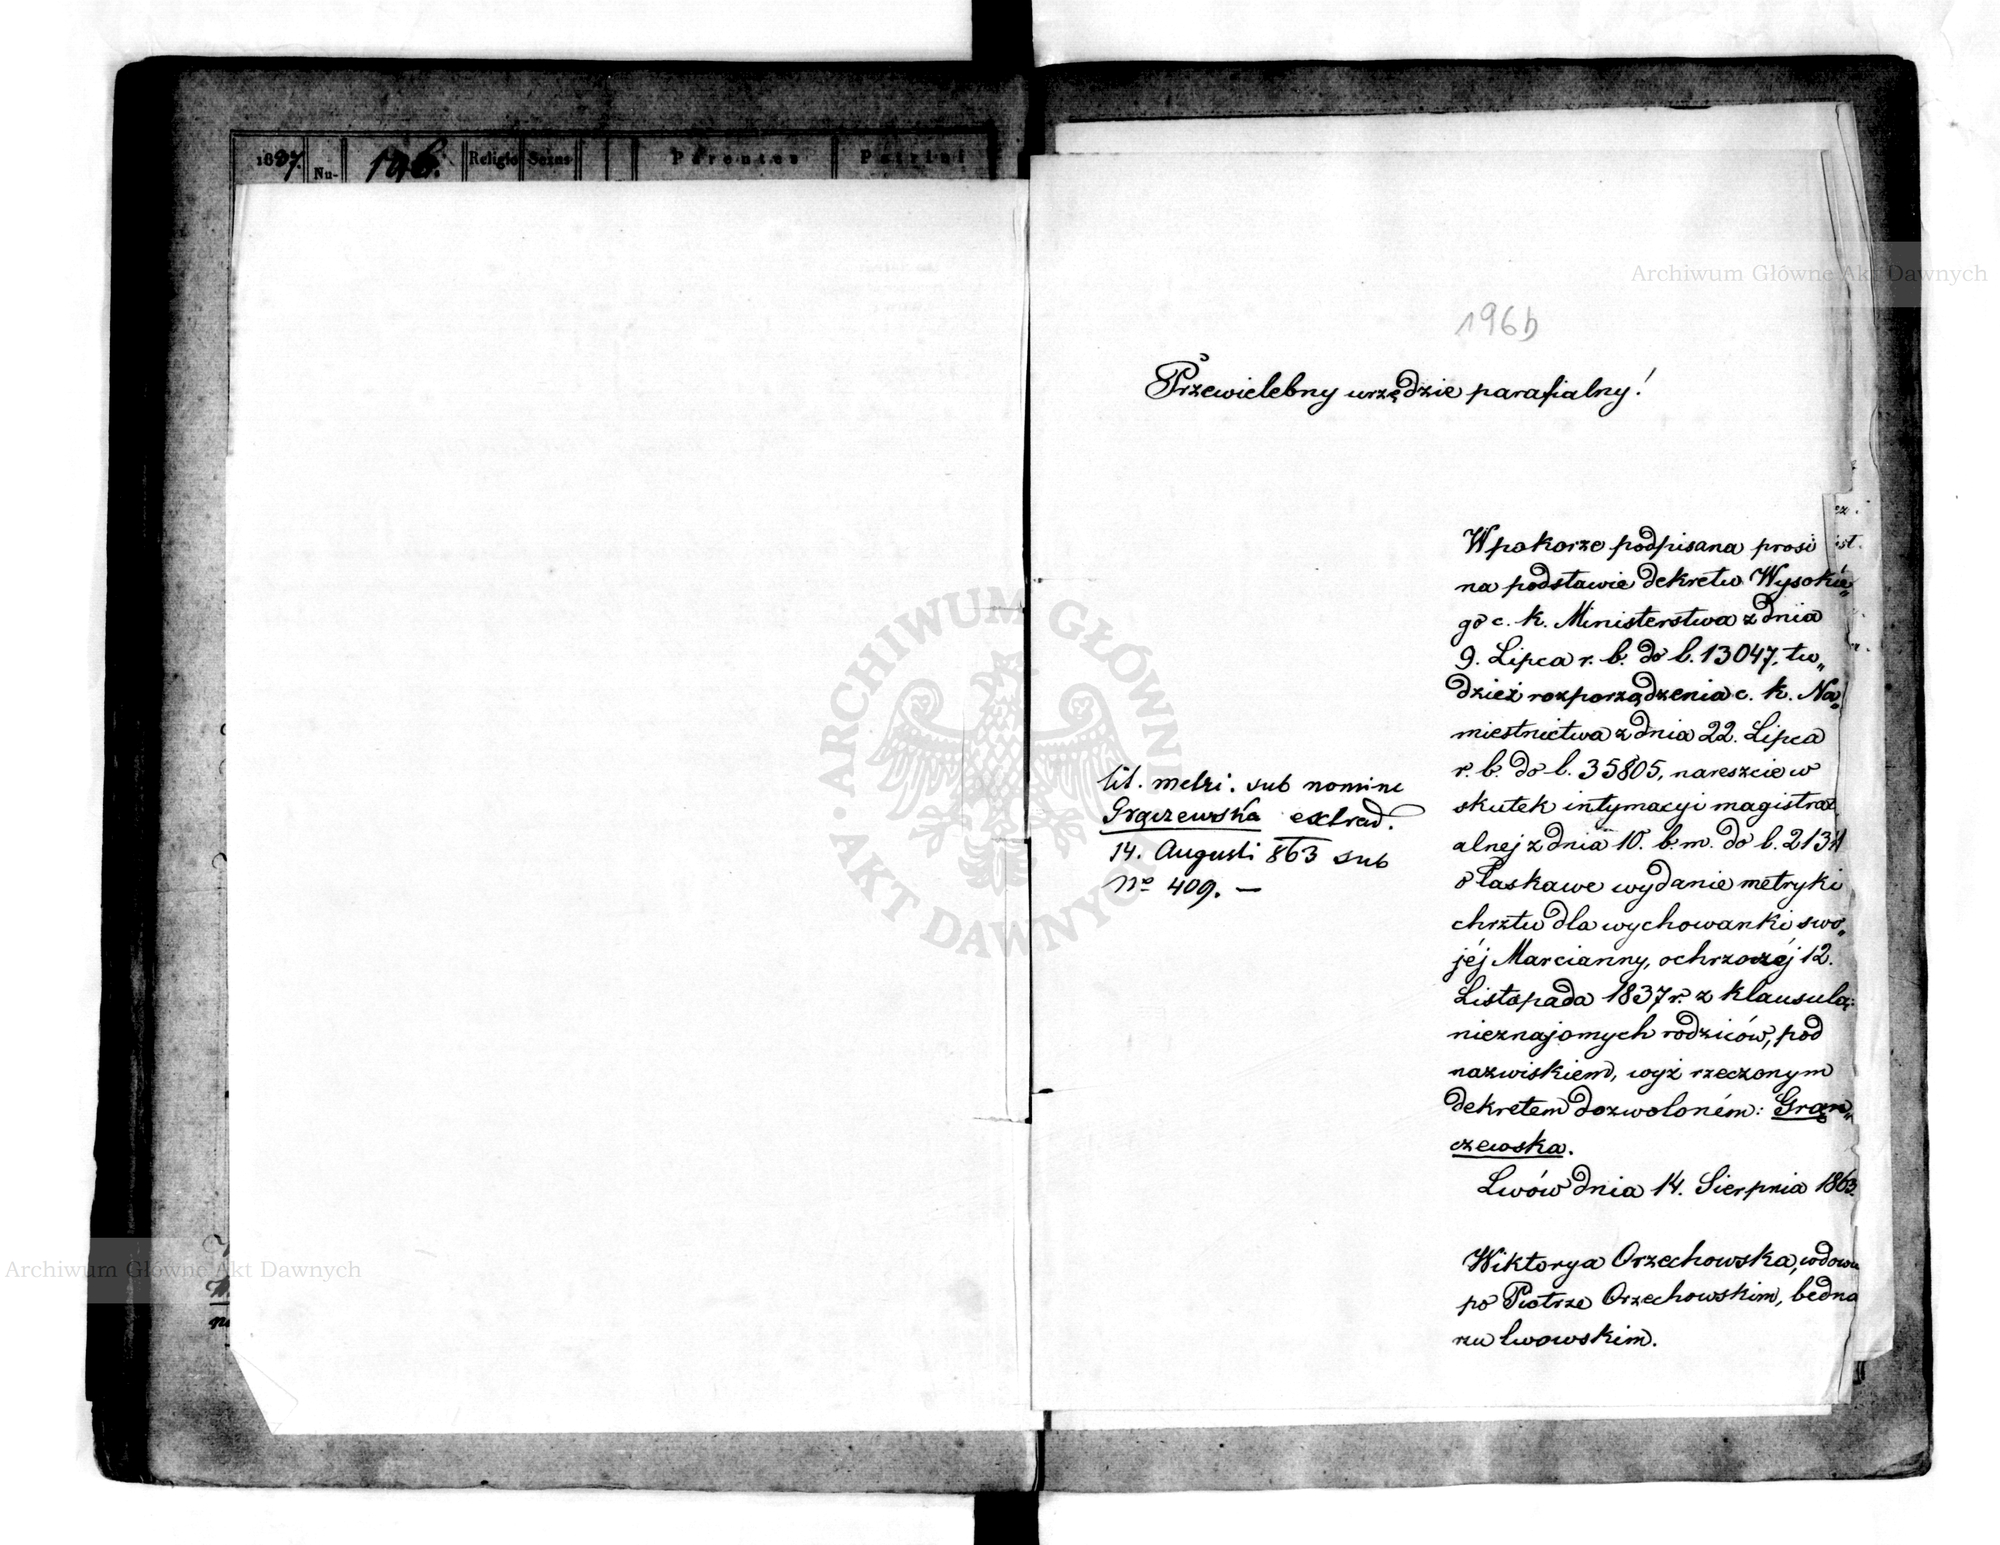 1837.
Nu-
196.
Religio
Sexus
Parentes
Patrini
Archiwum Główne Akt Dawnych
196b
Przewielebny urzędzie parafialny!
W pokorze podpisana prosi
na podstawie dekretu Wysokié„
go c. k. Ministerstwa z dnia
9. Lipca r. b. do l. 13047, tu„
dzież rozporządzenia c. k. Na„
miestnictwa z dnia 22. Lipca
r. b. do l. 35805, nareszcie w
skutek intymacyi magistra„
alnej z dnia 10. b. m. do l.
o łaskawe wydanie metryki
chrztu dla wychowanki swo„
jéj Marcianny, ochrzozéj 12.
Listopada 1837 r. z klausulą:
nieznajomych rodziców, pod
nazwiskiem, wyż rzeczonym
dekretem dozwoloném: Grąn„
czewska.
Lwów dnia 14. Sierpnia 1863
Wiktorya Orzechowska, wdowa
po Piotrze Orzechowskim, bedna
rzu lwowskim.
lit. metri. sub nomine
Grączewska extrad.
14. Augusti 863 sub
No 409. —
ARCHIWUM GŁÓWNE AKT DAWNYCH
Archiwum Główne Akt Dawnych